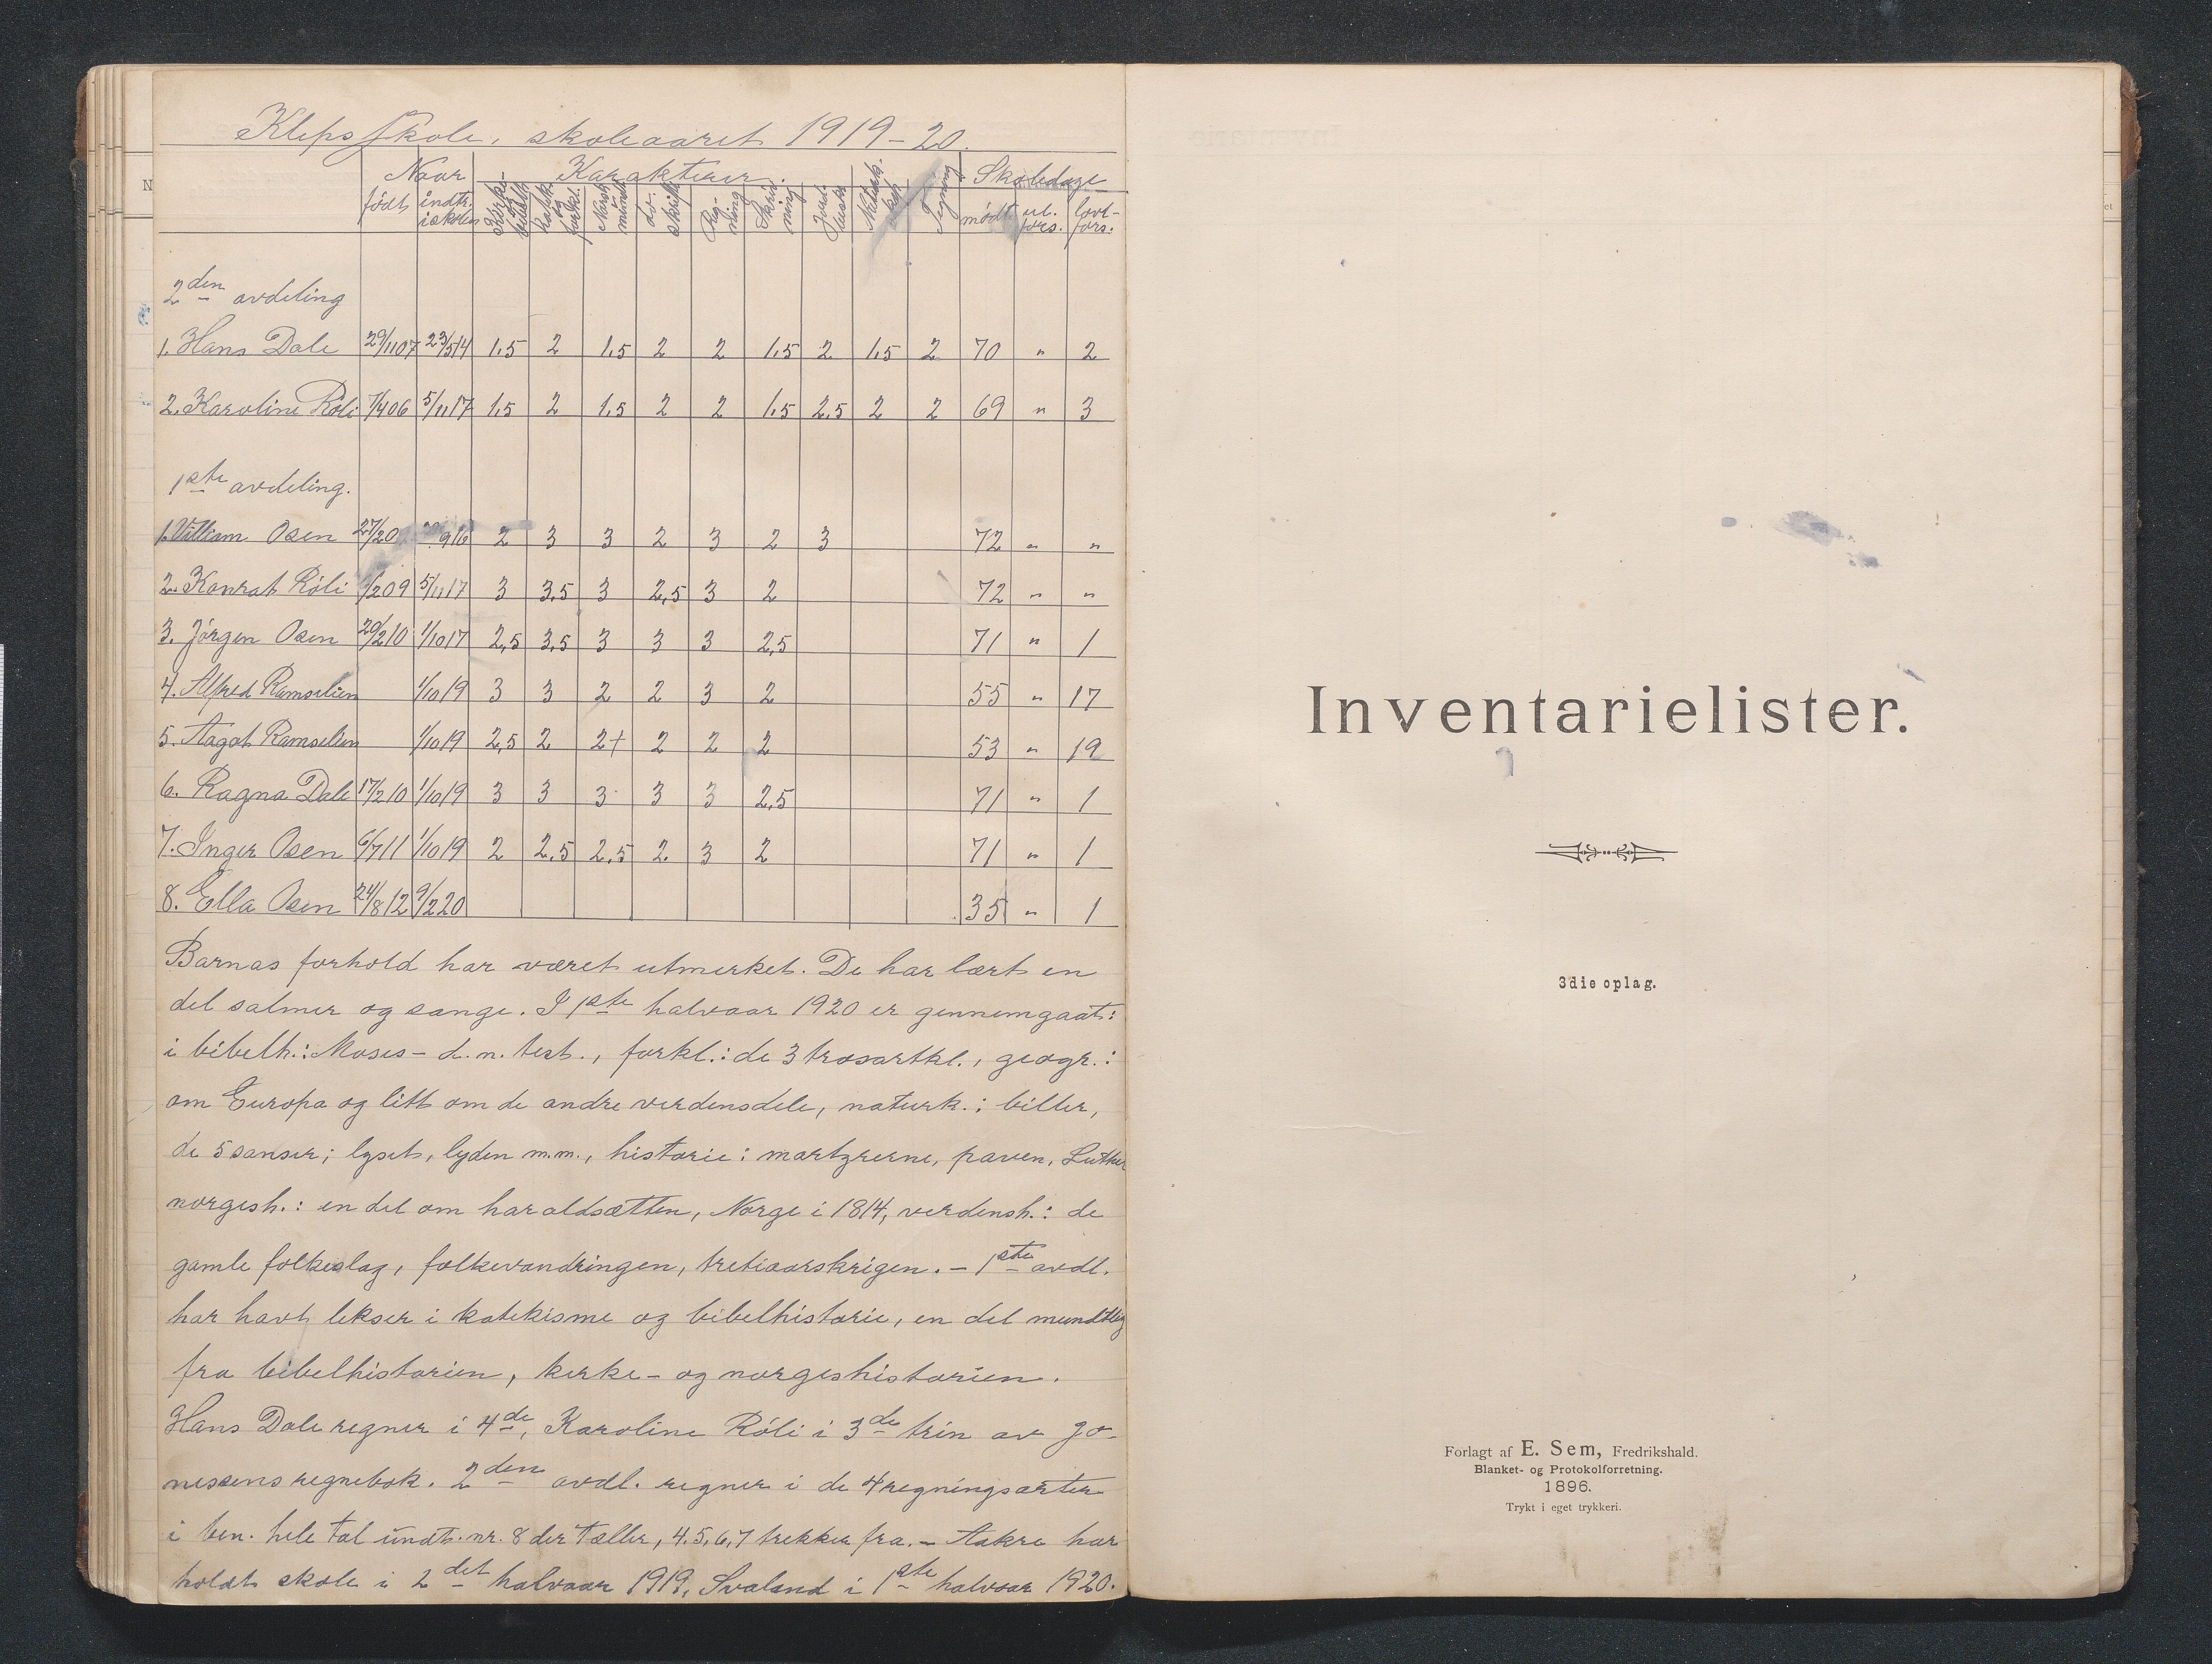 Kleps skole, skoleaaret 1919-20.
Naar Karakterer. Skoledage
født indtr. i skolen Kirke- bibelh. Katek. og forkl. Norsk mundt. do. skriftl. Reg- ning Skriv- ning Jord- Natursk. Tegning mødt ul. fors. lovl- fors.
2den avdeling
1. Hans Dale 29/11 07 23/5 14 1.5 2 1.5 2 2 1.5 2 1.5 2 70 " 2
2. Karoline Röli 7/4 06 5/11 17 1.5 2 1.5 2 2 1.5 2.5 2 2 69 " 3
1ste avdeling.
1. Villiam Osen 2 3 3 2 3 2 3 72 " "
2. Konrat Röli 5/11 17 3 3.5 3 2,5 3 2 72 " "
3. Jörgen Osen 20/2 10 1/10 17 2,5 3.5 3 3 3 2,5 71 " 1
4. Alfred Ramselien 1/10 19 3 3 2 2 3 2 55 " 17
5. Aagot Ramselien 1/10 19 2,5 2 2+ 2 2 2 53 " 19
6. Ragna Dale 17/2 10 1/10 19 3 3 3 3 3 2,5 71 " 1
7. Inger Osen 6/7 11 1/10 19 2 2.5 2.5 2. 3 2 71 " 1
8. Ella Osen 24/8 12 9/2 20 35 " 1
Barnas forhold har været utmerket. De har lært en
del salmer og sange. I 1ste halvaar 1920 er gennemgaat:
i bibelh.: Moses - d. n. test., forkl.: de 3 trosartkl., geogr.:
om Europa og litt om de andre verdensdele, naturk.: biller,
de 5 sanser; lyset, lyden m.m., historie: martyrerne, paven, Luther
norgesh.: en del om haraldsætten, Norge i 1814, verdensh.: de
gamle folkeslag, folkevandringen, tretiaarskrigen. - 1ste avdl.
har havt lekser i katekisme og bibelhistorie, en del mundtlig
fra bibelhistorien, kirke- og norgeshistorien.
Hans Dale regner i 4de, Karoline Röli i 3de trin av Jo-
nessens regnebok. 2den avdl. regner i de 4 regningsarter
i ben. hele tal undt. nr. 8 der tæller, 4.5,6,7 trekker fra. - Aakre har
holdt skole i 2det halvaar 1919, Svaland i 1ste halvaar 1920.
Inventarielister.
3die oplag.
Forlagt af E. Sem, Fredrikshald.
Blanket- og Protokolforretning.
1896.
Trykt i eget trykkeri.